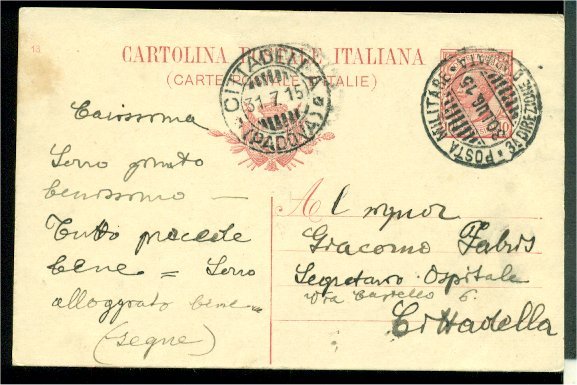 15
CARTOLINA POSTALE ITALIANA
(CARTE POSTALE D'ITALIE)
CITTADELLA
31.7.15
(PADOVA)
POSTA MILITARE
30 LUG 15
3ª DIREZIONE
Carissima
Sono giunto
benissimo —
Tutto procede
bene = Sono
alloggiato bene
(segue)
Al signor
Giacomo Fabris
Segretario Ospitale
Via Castello 6.
Cittadella